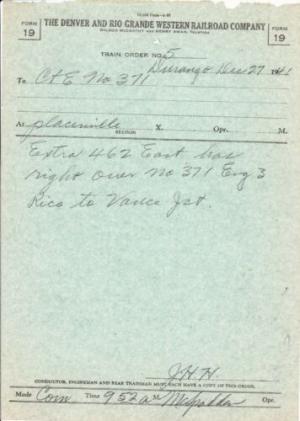 FORM 19 THE DENVER AND RIO GRANDE WESTERN RAILROAD COMPANY FORM 19
WILSON McCARTHY and HENRY SWAN, TRUSTEES
TRAIN ORDER NO. 5
Durango Dec 27 1941
To C&E No 371
At Placerville STATION X. Opr. M.
Extra 462 East has
right over No 371 Eng 3
Rico to Vance Jct.
J.H.H.
CONDUCTOR, ENGINEMAN AND REAR TRAINMAN MUST EACH HAVE A COPY OF THIS ORDER.
Made Com Time 952a M. Opr.